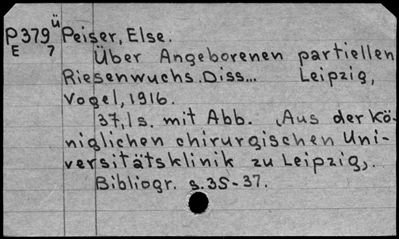 P379ü Peiser, Else.
E 7 Über Angeborenen partiellen
Riesenwuchs. Diss... Leipzig,
Vogel, 1916.
37,1 s. mit Abb. Aus der Kö-
niglichen chirurgischen Uni-
versitätsklinik zu Leipzig,.
Bibliogr. s.35-37.